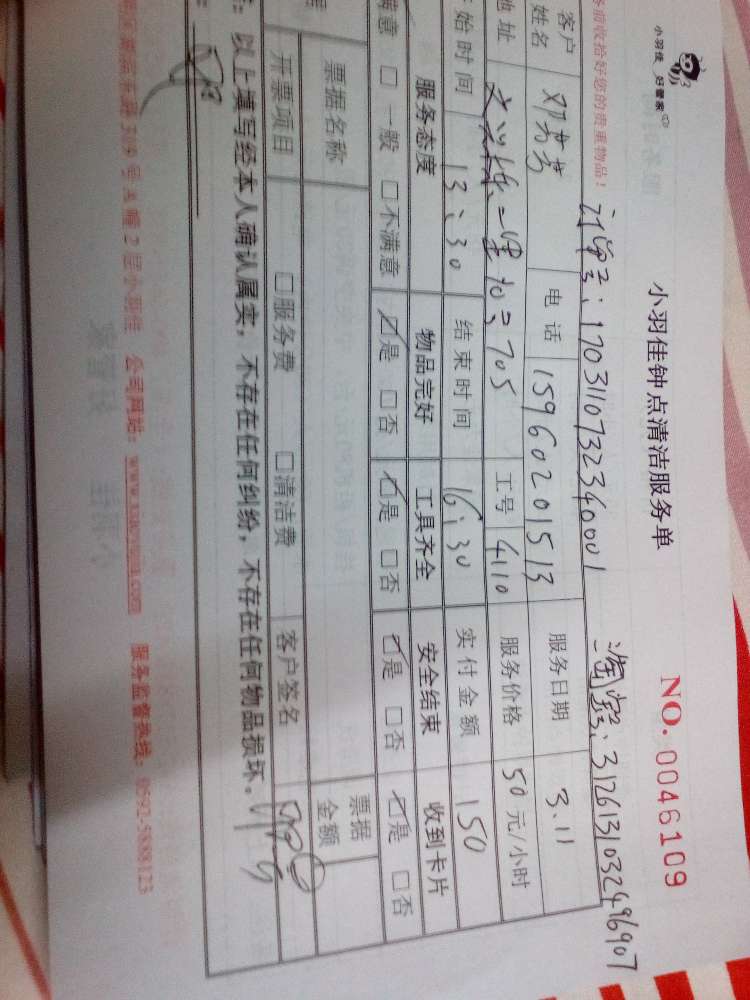 小羽佳 好管家
小羽佳钟点清洁服务单
NO. 0046109
前收拾好您的贵重物品!
订单号:1703110732340001
淘宝:3126131032496907
客户姓名 邓芳芳 电话 15960201513 服务日期 3.11
地址 705 工号 4110 服务价格 50元/小时
始时间 13:30 结束时间 16:30 实付金额 150
服务态度 物品完好 工具齐全 安全结束 收到卡片
满意 □一般 □不满意 ☑是 □否 ☑是 □否 ☑是 □否 ☑是 □否
票据名称 票据金额
开票项目 □服务费 □清洁费 客户签名
:以上填写经本人确认属实,不存在任何纠纷,不存在任何物品损坏。
309号A幢2层小羽佳 公司网站:www.xiaoyujia.com 服务监督热线:0592-5888123